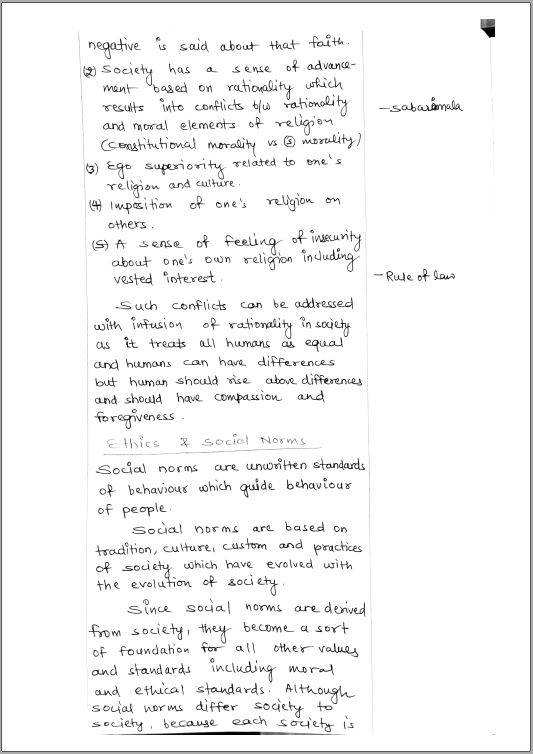 negative is said about that faith.
(2) Society has a sense of advance-
ment based on rationality which
results into conflicts b/w rationality
and moral elements of religion
(constitutional morality vs Ⓢ morality)
- Sabarimala
(3) Ego superiority related to one's
religion and culture.
(4) Imposition of one's religion on
others.
(5) A sense of feeling of insecurity
about one's own religion including
vested interest.
- Rule of law
Such conflicts can be addressed
with infusion of rationality in society
as it treats all humans as equal
and humans can have differences
but human should rise above differences
and should have compassion and
foregiveness.
Ethics & Social Norms
Social norms are unwritten standards
of behaviour which guide behaviour
of people.
Social norms are based on
tradition, culture, custom and practices
of society which have evolved with
the evolution of society.
Since social norms are derived
from society, they become a sort
of foundation for all other values
and standards including moral
and ethical standards. Although
social norms differ society to
society, because each society is